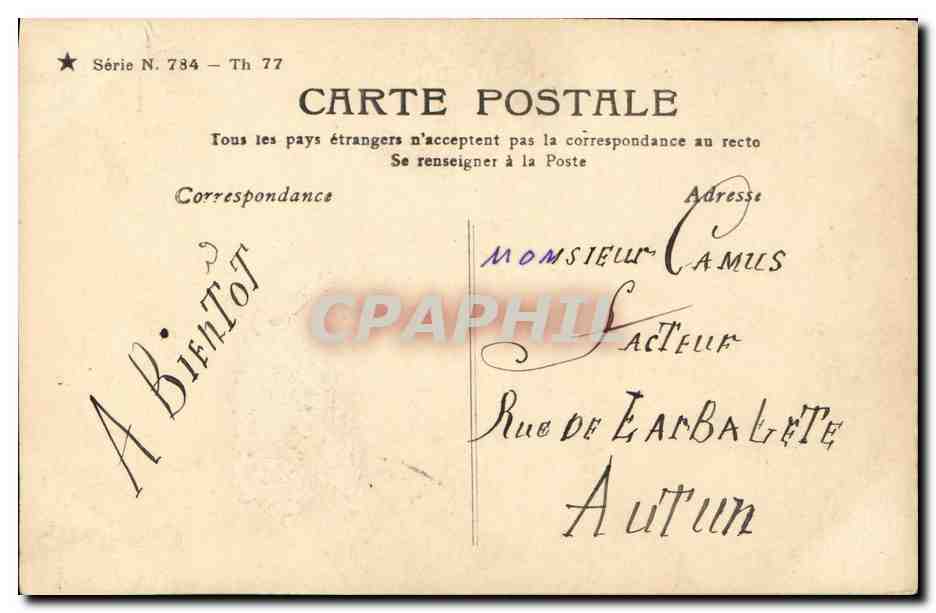 ★ Série N. 784 – Th 77
CARTE POSTALE
Tous les pays étrangers n'acceptent pas la correspondance au recto
Se renseigner à la Poste
Correspondance
Adresse
A BientôT
Monsieur Camus
Facteur
Rue de L'arbalète
Autun
CPAPHIL